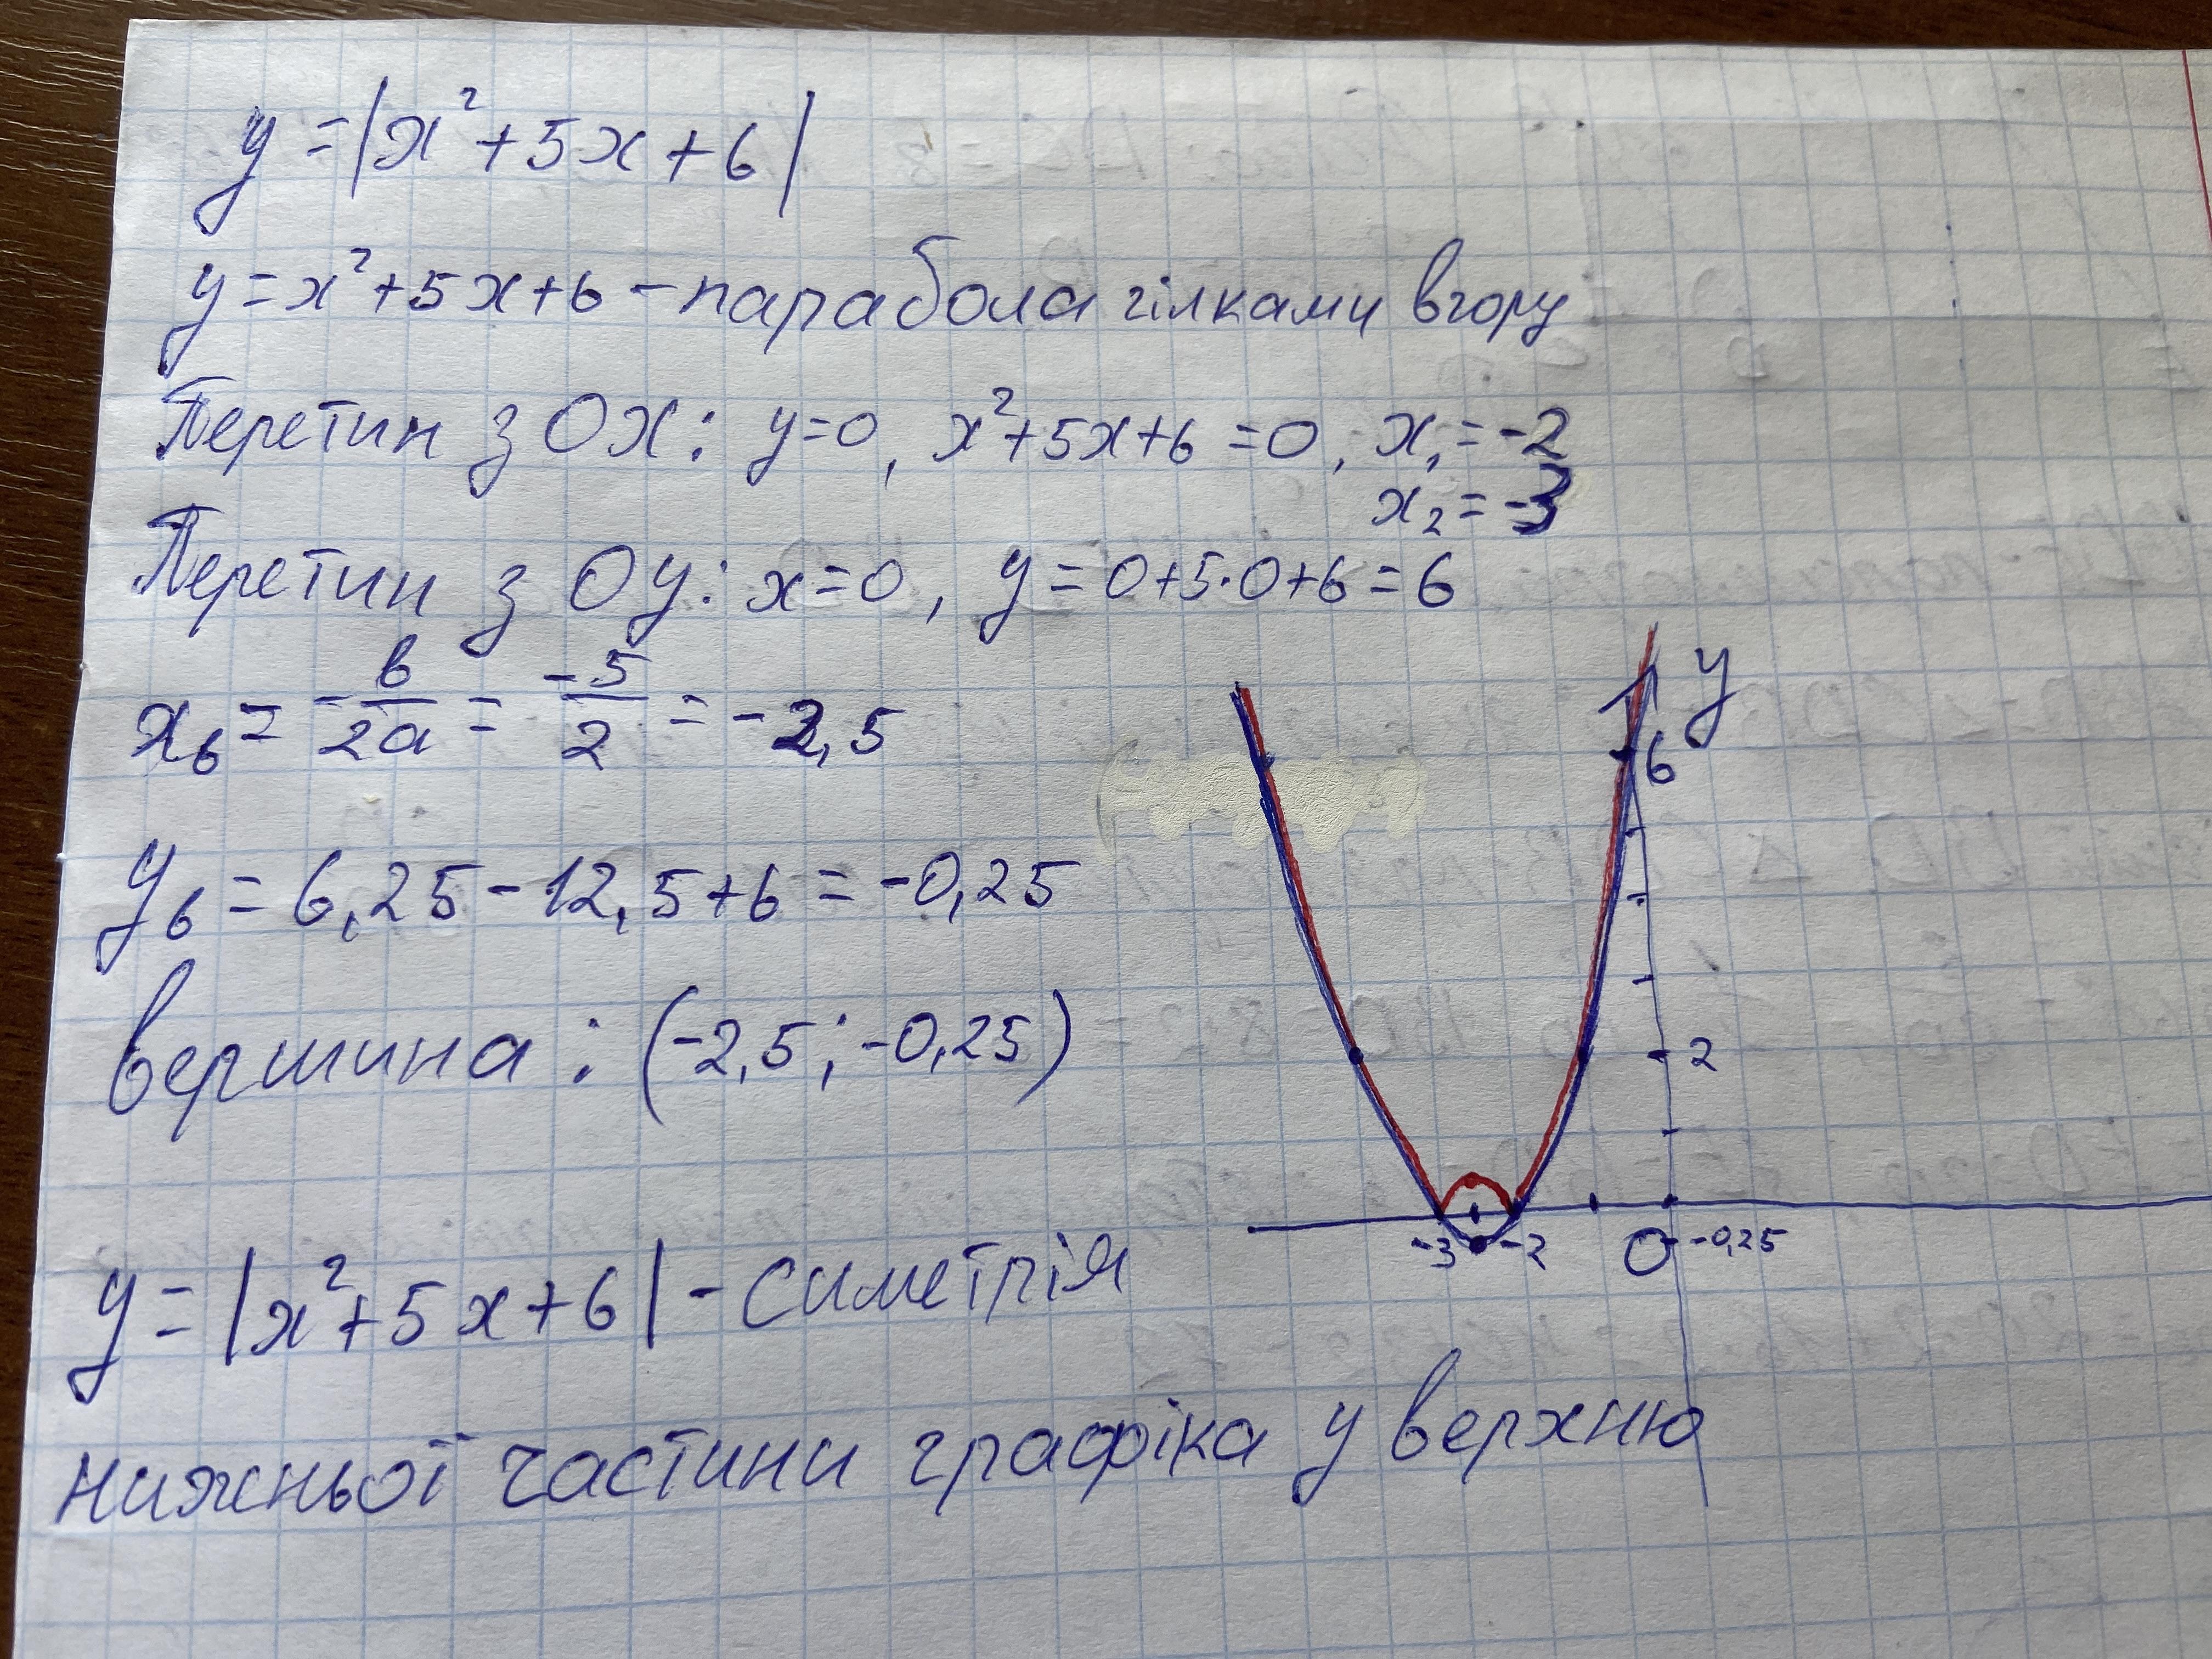 y = |x² + 5x + 6|
y = x² + 5x + 6 - парабола гілками вгору
Перетин з OX: y=0, x²+5x+6 =0, x₁ = -2
x₂ = -3
Перетин з Oy: x=0, y = 0+5·0+6 = 6
xв = -в/2a = -5/2 = -2,5
yв = 6,25 - 12,5 + 6 = -0,25
вершина: (-2,5; -0,25)
y = |x² + 5x + 6| - симетрія
нижньої частини графіка у верхню
y
6
2
-3 -2 O -0,25